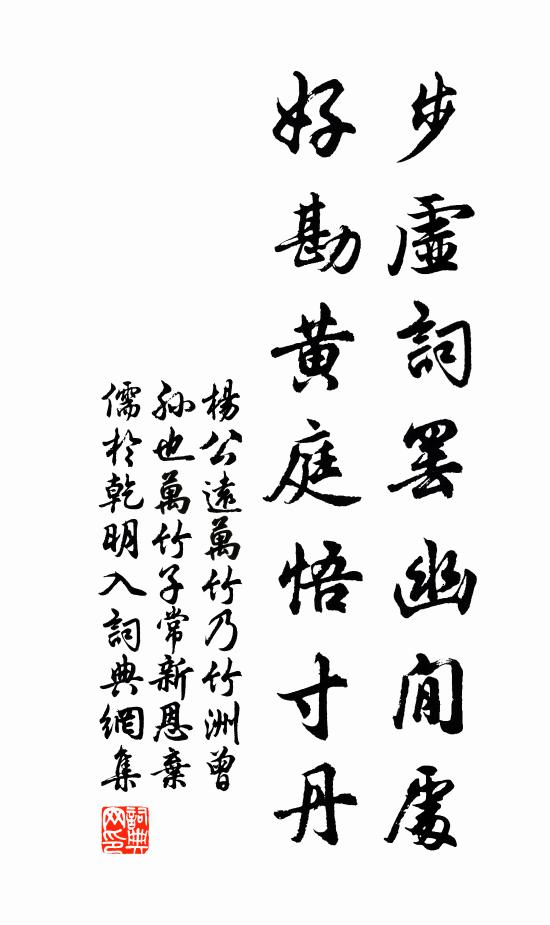 步虛詞罷幽閒處
好勘黃庭悟寸丹
楊公遠萬竹乃竹洲曾
孫也萬竹子常新恩棄
儒於乾明入詞典網集
詞典
网印